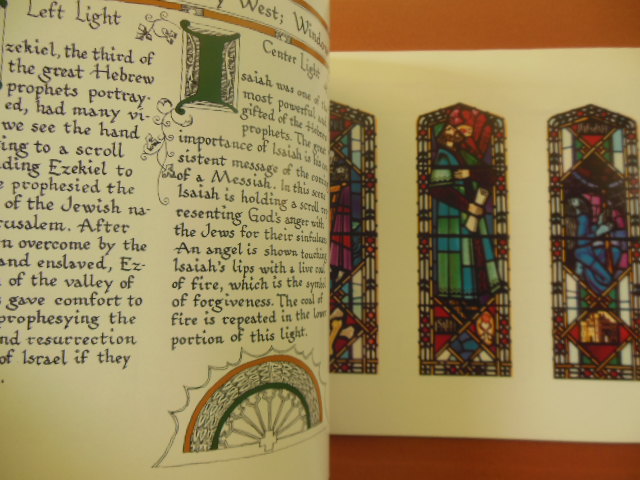 y West; Window
Left Light
zekiel, the third of
the great Hebrew
prophets portray-
ed, had many vi-
we see the hand
ing to a scroll
ding Ezekiel to
e prophesied the
of the Jewish na-
rusalem. After
n overcome by the
and enslaved, Ez-
of the valley of
s gave comfort to
prophesying the
nd resurrection
of Israel if they
Center Light
Isaiah was one of the
most powerful and
gifted of the Hebrew
prophets. The great
importance of Isaiah is his con
sistent message of the coming
of a Messiah. In this scene
Isaiah is holding a scroll rep
resenting God's anger with
the Jews for their sinfulness
An angel is shown touching
Isaiah's lips with a live coal
of fire, which is the symbol
of forgiveness. The coal of
fire is repeated in the lower
portion of this light.